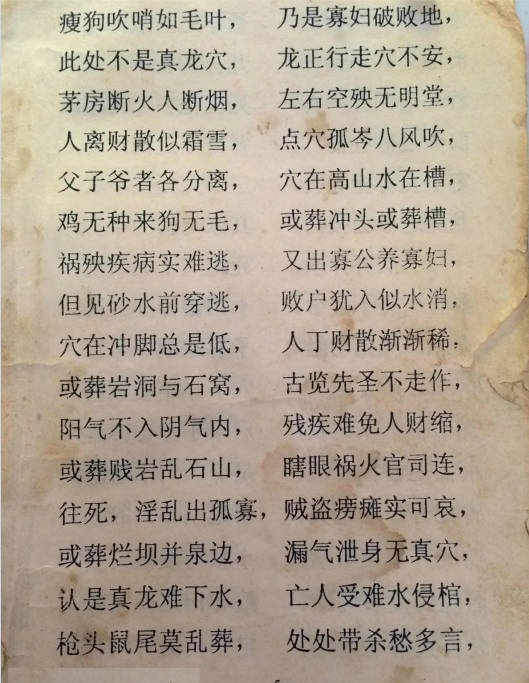 瘦狗吹哨如毛叶， 乃是寡妇破败地，
此处不是真龙穴， 龙正行走穴不安，
茅房断火人断烟， 左右空殃无明堂，
人离财散似霜雪， 点穴孤岑八风吹，
父子爷者各分离， 穴在高山水在槽，
鸡无种来狗无毛， 或葬冲头或葬槽，
祸殃疾病实难逃， 又出寡公养寡妇，
但见砂水前穿逃， 败户犹入似水消，
穴在冲脚总是低， 人丁财散渐渐稀，
或葬岩洞与石窝， 古览先圣不走作，
阳气不入阴气内， 残疾难免人财缩，
或葬贱岩乱石山， 瞎眼祸火官司连，
往死，淫乱出孤寡， 贼盗痨瘫实可哀，
或葬烂坝并泉边， 漏气泄身无真穴，
认是真龙难下水， 亡人受难水侵棺，
枪头鼠尾莫乱葬， 处处带杀愁多言，